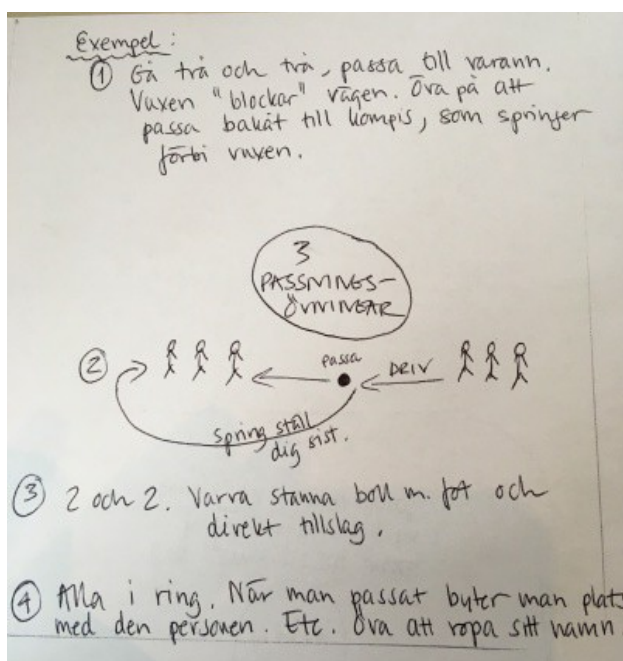 Exempel:
① Gå två och två, passa till varann.
Vuxen "blockar" vägen. Öva på att
passa bakåt till kompis, som springer
förbi vuxen.
3
PASSNINGS-
ÖVNINGAR
②
passa
DRIV
spring ställ
dig sist.
③ 2 och 2. Varva stanna boll m. fot och
direkt tillslag.
④ Alla i ring. När man passat byter man plats
med den personen. Etc. Öva att ropa sitt namn